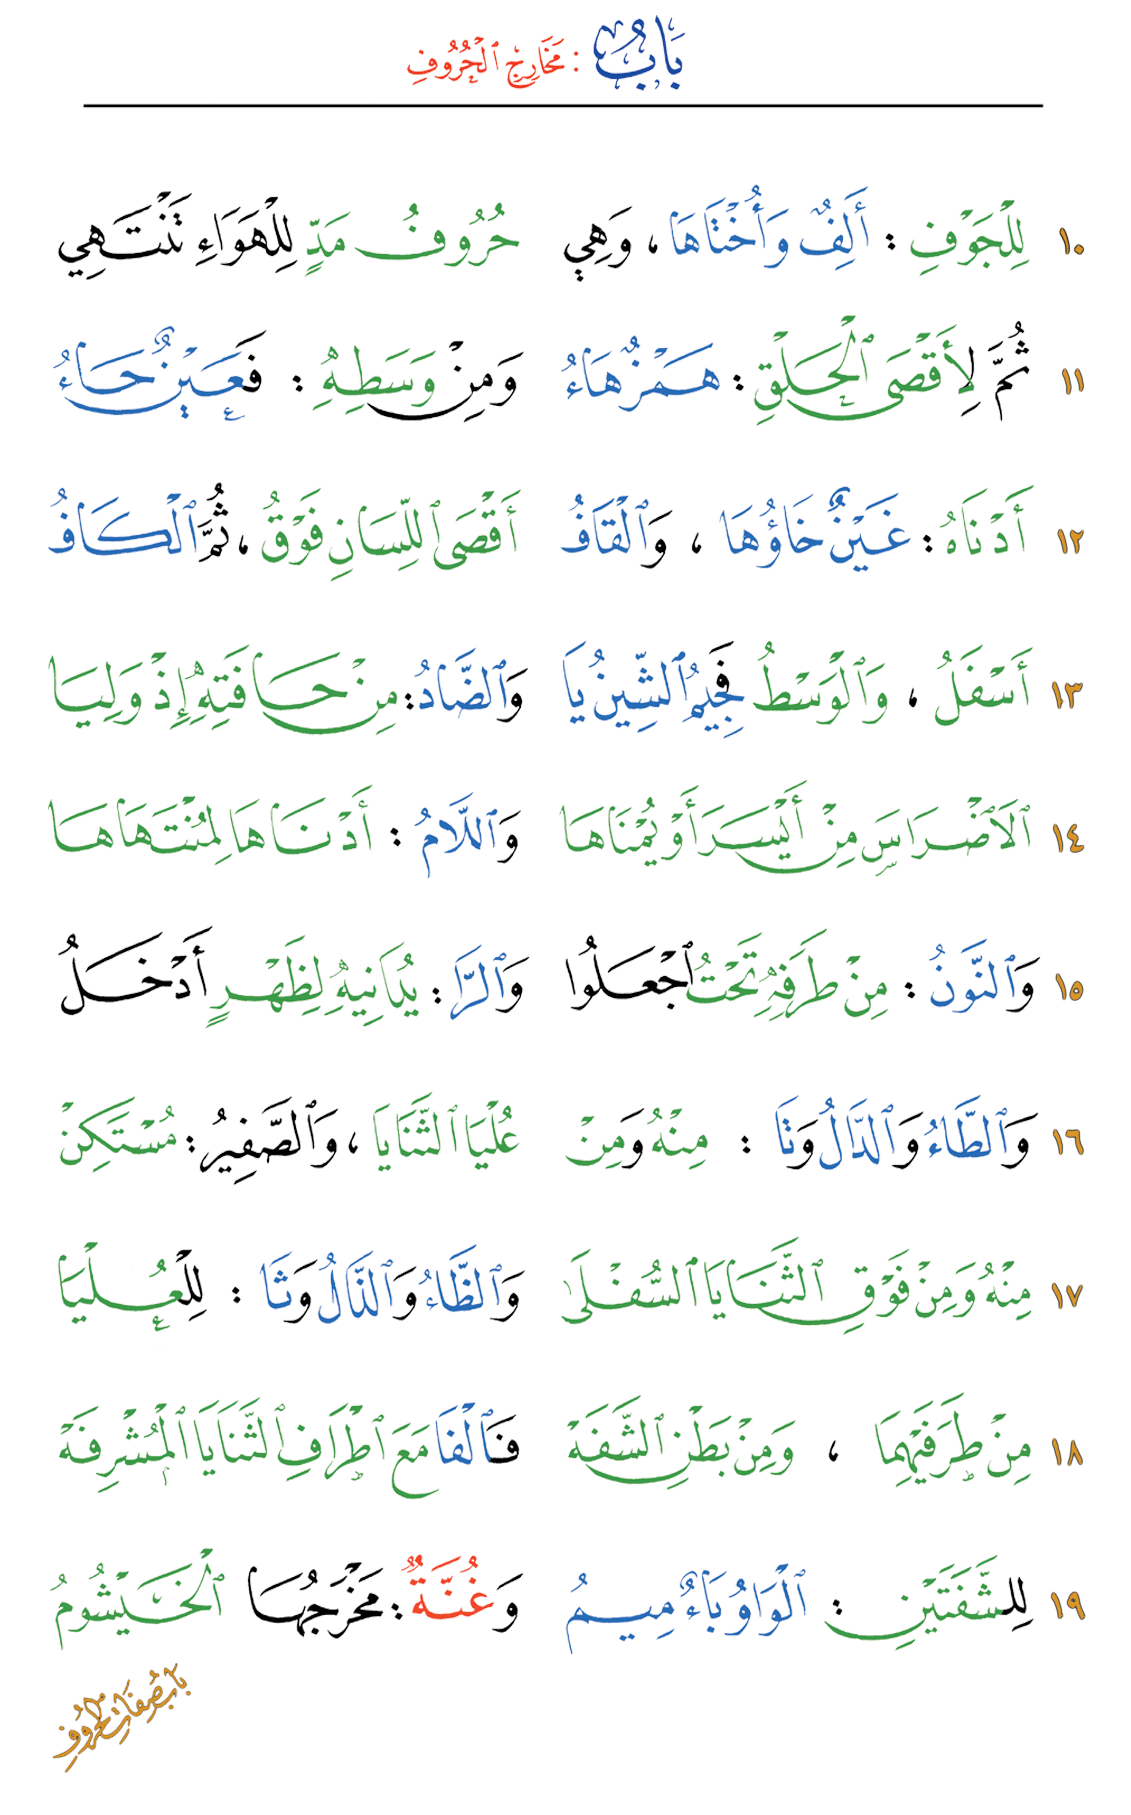 بَابُ : مَخَارِجِ ٱلْحُرُوفِ
١٠ لِلْجَوْفِ : أَلِفٌ وَأُخْتَاهَا ، وَهِي حُرُوفُ مَدٍّ لِلْهَوَاءِ تَنْتَهِي
١١ ثُمَّ لِأَقْصَى ٱلْحَلْقِ : هَمْزٌ هَاءُ وَمِنْ وَسَطِهِ : فَعَيْنٌ حَاءُ
١٢ أَدْنَاهُ : غَيْنٌ خَاؤُهَا ، وَٱلْقَافُ أَقْصَى ٱللِّسَانِ فَوْقُ ، ثُمَّ ٱلْكَافُ
١٣ أَسْفَلُ ، وَٱلْوَسْطُ فَجِيمُ ٱلشِّينُ يَا وَٱلضَّادُ : مِنْ حَافَتِهِ إِذْ وَلِيَا
١٤ ٱلَاضْرَاسَ مِنْ أَيْسَرَ أَوْ يُمْنَاهَا وَٱللَّامُ : أَدْنَاهَا لِمُنْتَهَاهَا
١٥ وَٱلنُّونُ : مِنْ طَرَفِهِ تَحْتُ ٱجْعَلُوا وَٱلرَّا : يُدَانِيهِ لِظَهْرٍ أَدْخَلُ
١٦ وَٱلطَّاءُ وَٱلدَّالُ وَتَا : مِنْهُ وَمِنْ عُلْيَا ٱلثَّنَايَا ، وَٱلصَّفِيرُ : مُسْتَكِنْ
١٧ مِنْهُ وَمِنْ فَوْقِ ٱلثَّنَايَا ٱلسُّفْلَىٰ وَٱلظَّاءُ وَٱلذَّالُ وَثَا : لِلْعُلْيَا
١٨ مِنْ طَرَفَيْهِمَا ، وَمِنْ بَطْنِ ٱلشَّفَهْ فَٱلْفَا مَعَ ٱطْرَافِ ٱلثَّنَايَا ٱلْمُشْرِفَهْ
١٩ لِلشَّفَتَيْنِ : ٱلْوَاوُ بَاءٌ مِيمُ وَغُنَّةٌ : مَخْرَجُهَا ٱلْخَيْشُومُ
بَابُ صِفَاتِ ٱلْحُرُوفِ